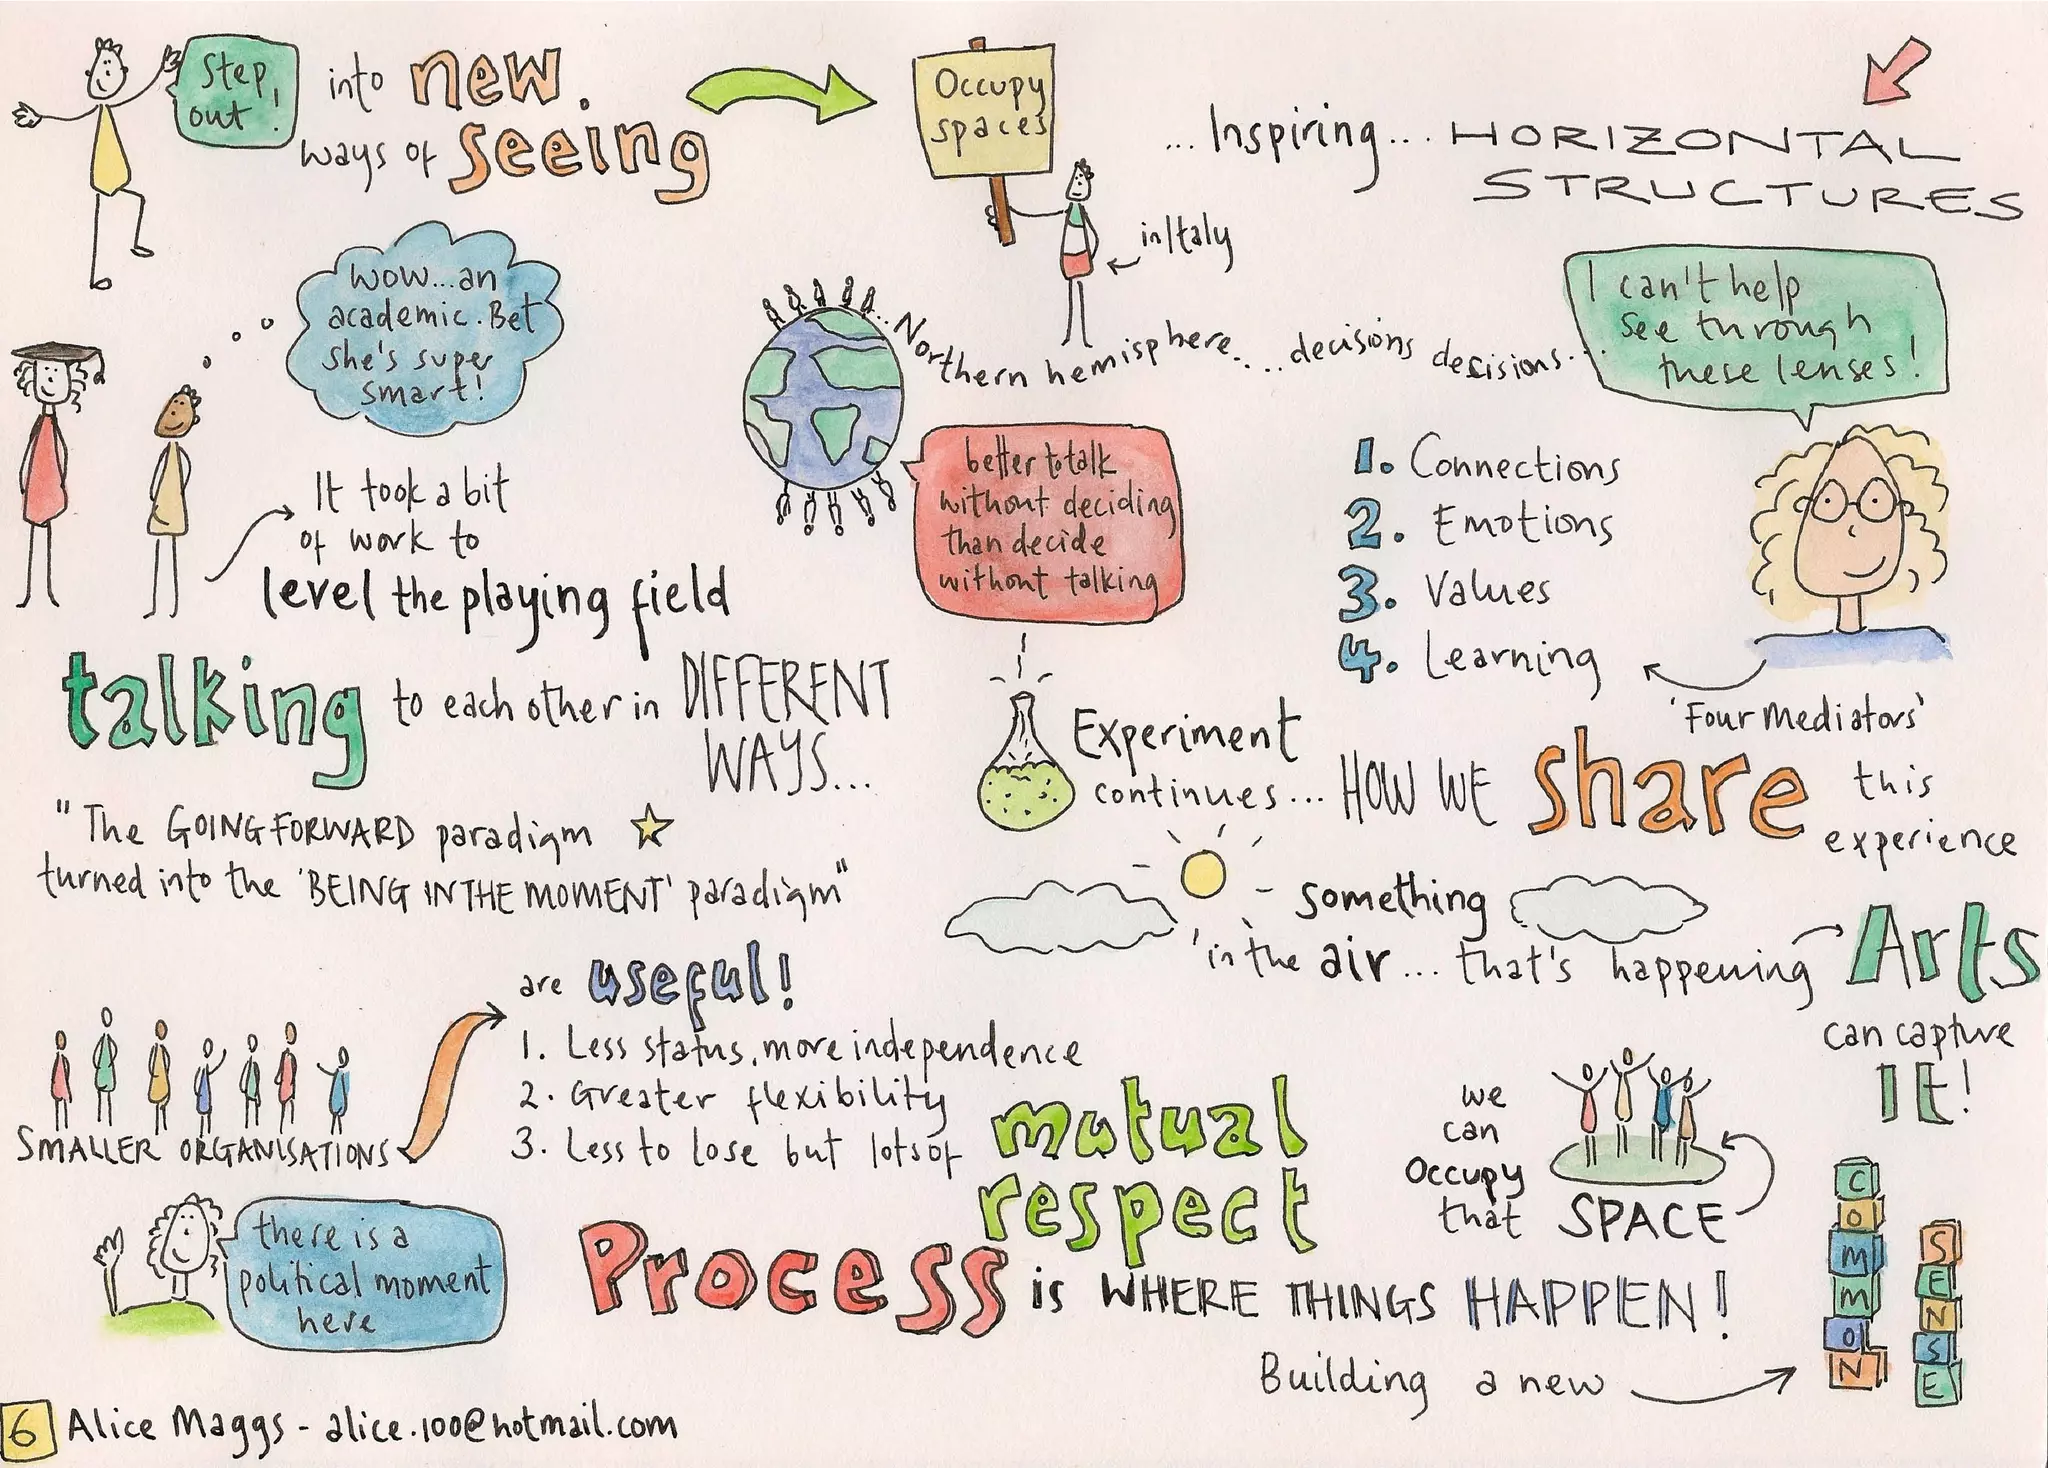 Step out!
into new
ways of seeing
Occupy
spaces
in Italy
... Inspiring... HORIZONTAL
STRUCTURES
wow...an
academic. Bet
she's super
smart!
It took a bit
of work to
level the playing field
... Northern hemisphere... ...decisions decisions...
better to talk
without deciding
than decide
without talking
I can't help
see through
these lenses!
1. Connections
2. Emotions
3. Values
4. Learning
'Four Mediators'
talking to each other in DIFFERENT
WAYS...
"The GOING FORWARD paradigm
turned into the 'BEING IN THE MOMENT' paradigm"
Experiment
continues... HOW WE share this
experience
something
'in the air... that's happening
Arts
can capture
IT!
SMALLER ORGANISATIONS
are useful!
1. Less status, more independence
2. Greater flexibility
3. Less to lose but lots of mutual
respect
we
can
occupy
that SPACE
there is a
political moment
here
Process is WHERE THINGS HAPPEN!
Building a new
COMMON
SENSE
6 Alice Maggs - alice.100@hotmail.com